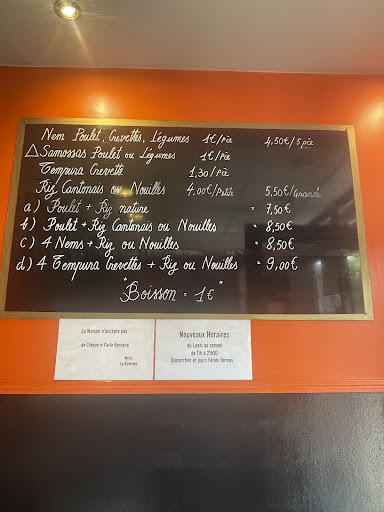 Nem Poulet, Crevettes, Légumes 1€/Pièce 4,50€/5 pèce
△ Samossas Poulet ou Légumes 1€/Pièce
Tempura Crevette 1,30/Pièce
Riz Cantonais ou Nouilles 4,00€/Petite 5,50€/Grande
a) Poulet + Riz nature = 7,50€
b) Poulet + Riz Cantonais ou Nouilles = 8,50€
c) 4 Nems + Riz ou Nouilles = 8,50€
d) 4 Tempura Crevettes + Riz ou Nouilles = 9,00€
"Boisson = 1€"
La Maison n'accepte pas
de Chèque ni Carte Bancaire
Merci
La Direction
Nouveaux Horaires
du Lundi au samedi
de 11h à 21h30
Dimanches et jours fériés fermés